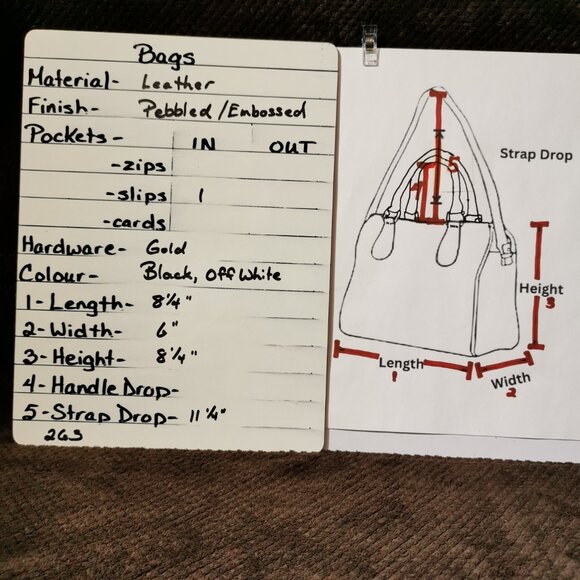 Bags
Material- Leather
Finish- Pebbled/Embossed
Pockets- IN OUT
-zips
-slips 1
-cards
Hardware- Gold
Colour- Black, Off White
1-Length- 8¼"
2-Width- 6"
3-Height- 8¼"
4-Handle Drop-
5-Strap Drop- 11¼"
2GS
Strap Drop
5
4
Height
3
Length
1
Width
2